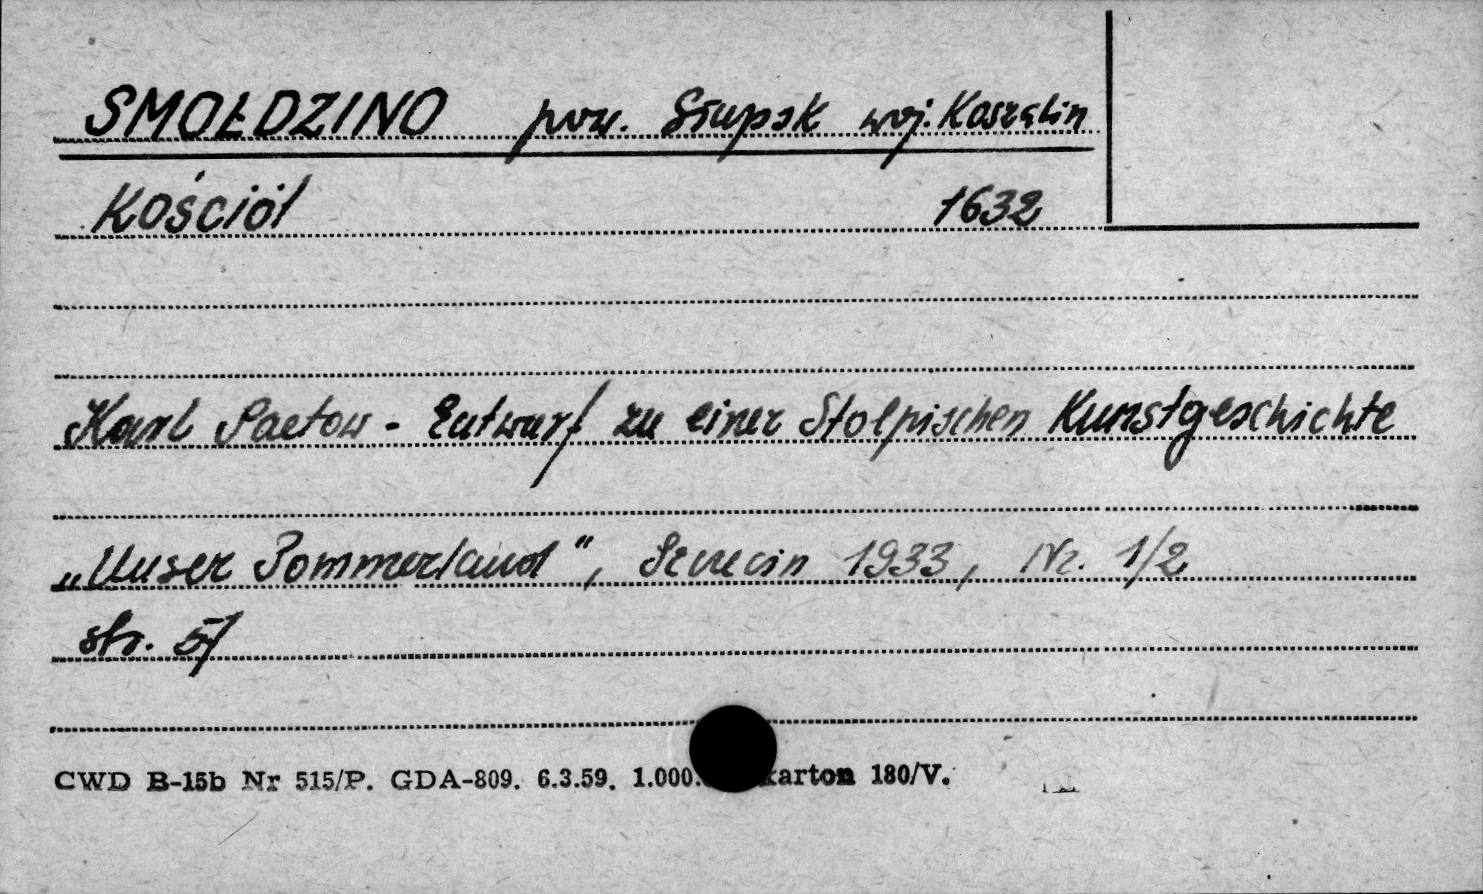 SMOŁDZINO pow. Słupsk woj. Koszalin
Kościół 1632
Karl Paetow - Entwurf zu einer Stolpischen Kunstgeschichte
„Unser Pommerland", Szczecin 1933, Nr. 1/2
str. 57
CWD B-15b Nr 515/P. GDA-809. 6.3.59. 1.000. karton 180/V.